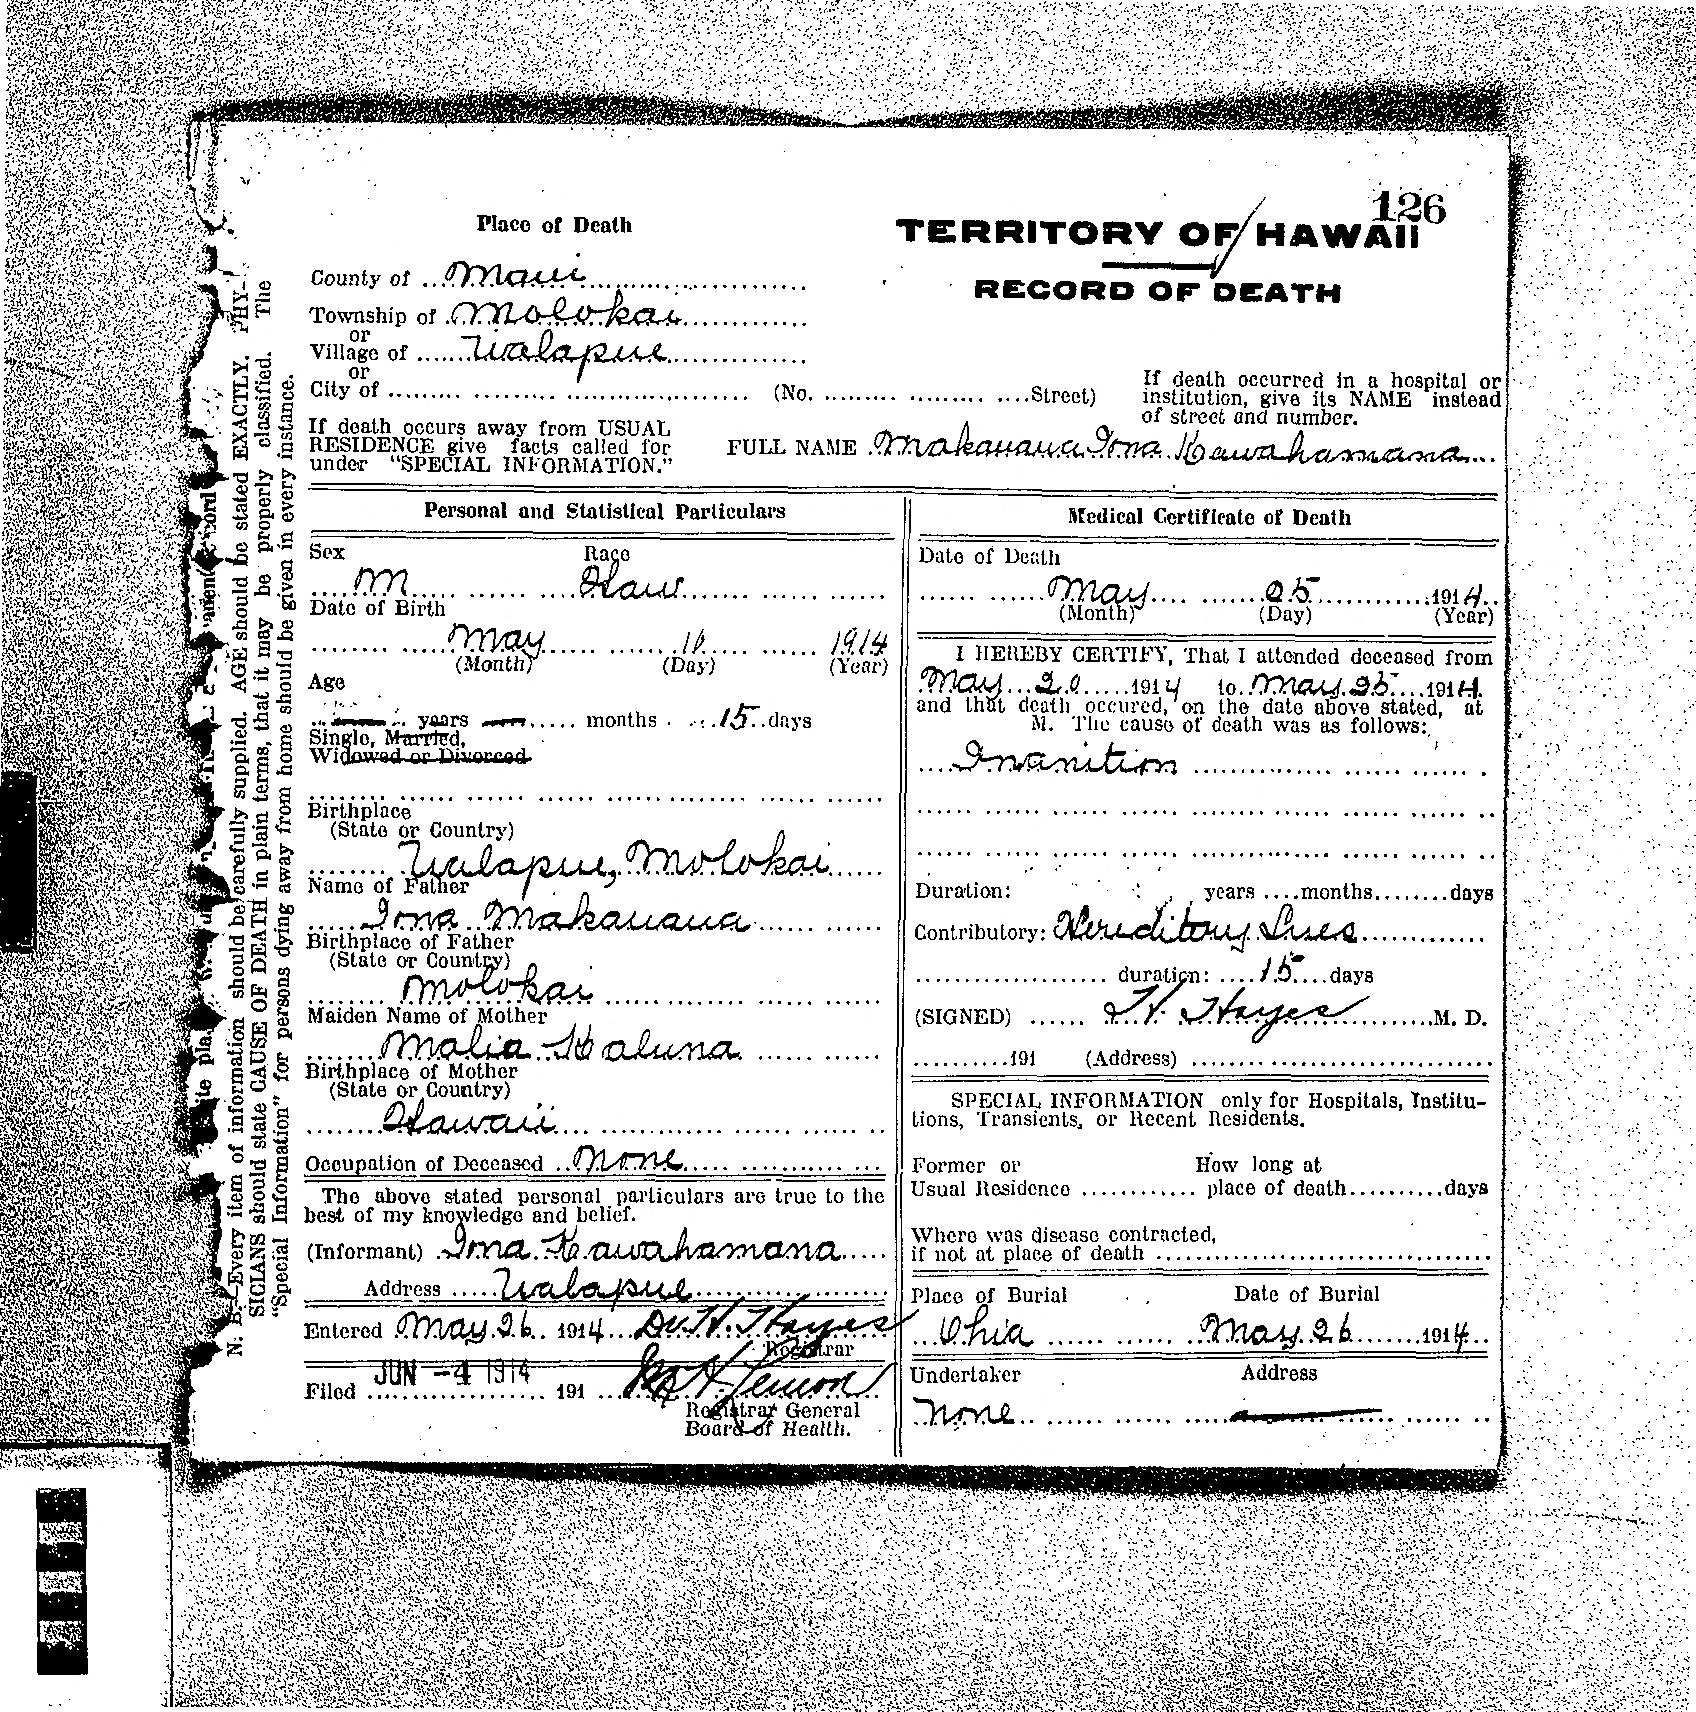 126
Place of Death
TERRITORY OF HAWAII
RECORD OF DEATH
County of Maui
Township of Molokai
or
Village of Ualapue
or
City of (No. Street)
If death occurred in a hospital or
institution, give its NAME instead
of street and number.
If death occurs away from USUAL
RESIDENCE give facts called for
under "SPECIAL INFORMATION."
FULL NAME Makauaua Iona Kawahamana
Personal and Statistical Particulars
Sex Race
M Haw
Date of Birth
May 10 1914
(Month) (Day) (Year)
Age
years months 15 days
Single, Married,
Widowed or Divorced
Birthplace
(State or Country)
Ualapue, Molokai
Name of Father
Iona Makauaua
Birthplace of Father
(State or Country)
Molokai
Maiden Name of Mother
Malia Kaluna
Birthplace of Mother
(State or Country)
Hawaii
Occupation of Deceased None
The above stated personal particulars are true to the
best of my knowledge and belief.
(Informant) Iona Kawahamana
Address Ualapue
Entered May 26 1914 Dr. H. Hayes
Registrar
JUN -4 1914
Filed 191
Registrar General
Board of Health.
Medical Certificate of Death
Date of Death
May 25 1914
(Month) (Day) (Year)
I HEREBY CERTIFY, That I attended deceased from
May 20 1914 to May 25 1914
and that death occured, on the date above stated, at
M. The cause of death was as follows:
Inanition
Duration: years months days
Contributory: Hereditary Lues
duration: 15 days
(SIGNED) H. Hayes M. D.
191 (Address)
SPECIAL INFORMATION only for Hospitals, Institu-
tions, Transients, or Recent Residents.
Former or How long at
Usual Residence place of death days
Where was disease contracted,
if not at place of death
Place of Burial Date of Burial
Ohia May 26 1914
Undertaker Address
None
N. B.—Every item of information should be carefully supplied. AGE should be stated EXACTLY. PHY-
SICIANS should state CAUSE OF DEATH in plain terms, that it may be properly classified. The
"Special Information" for persons dying away from home should be given in every instance.